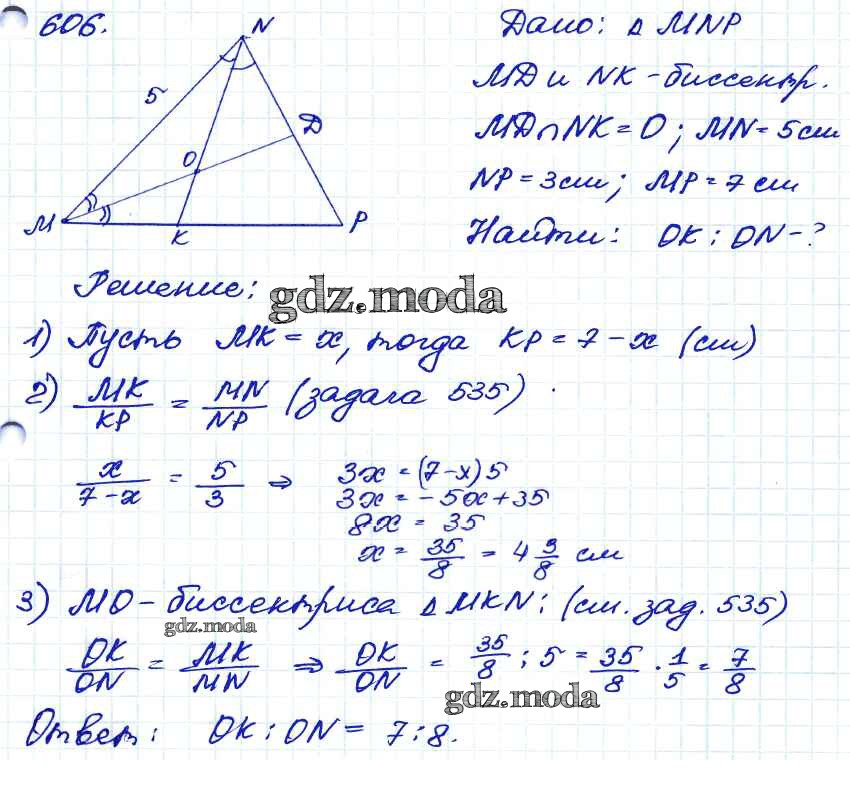 606.
Дано: Δ MNP
MD и NK - биссектр.
MD∩NK = O; MN = 5см
NP = 3см; MP = 7 см
Найти: OK : ON - ?
N
5
D
O
M
K
P
Решение:
gdz.moda
1) Пусть MK = x, тогда KP = 7 - x (см)
2) MK/KP = MN/NP (задача 535)
x/7-x = 5/3 ⇒ 3x = (7-x)5
3x = -5x + 35
8x = 35
x = 35/8 = 4 3/8 см
3) MO - биссектриса Δ MKN: (см. зад. 535)
gdz.moda
OK/ON = MK/MN ⇒ OK/ON = 35/8 : 5 = 35/8 · 1/5 = 7/8
gdz.moda
Ответ: OK : ON = 7 : 8.